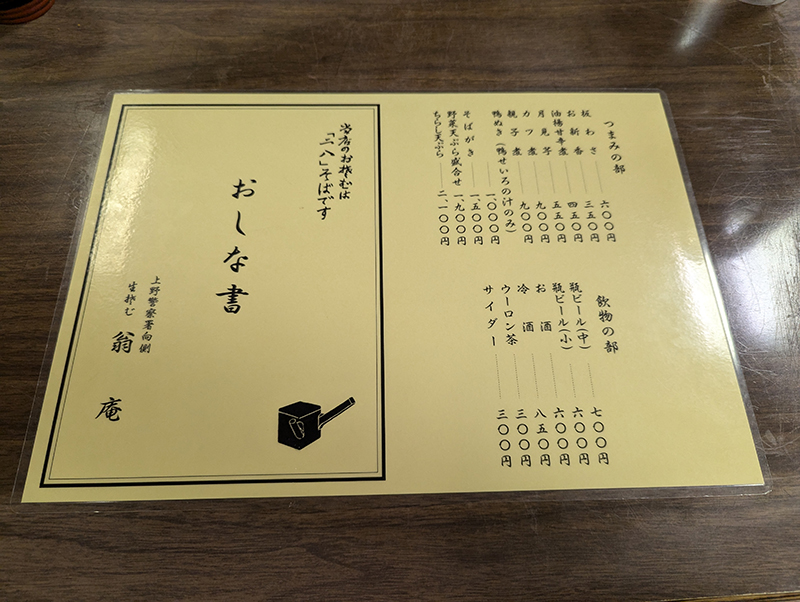 つまみの部
板わさ 六〇〇円
お新香 三五〇円
油揚甘辛煮 四五〇円
月見芋 五五〇円
カツ煮 九〇〇円
親子煮 九〇〇円
鴨ぬき(鴨せいろの汁のみ) 一、〇〇〇円
そばがき 一、五〇〇円
野菜天ぷら盛合せ 一、九〇〇円
ちらし天ぷら 二、一〇〇円
飲物の部
瓶ビール(中) 七〇〇円
瓶ビール(小) 六〇〇円
お酒 六〇〇円
冷酒 八五〇円
ウーロン茶 三〇〇円
サイダー 三〇〇円
当店のおそばは
「二、八」そばです
おしな書
上野警察署向側
生そば 翁庵